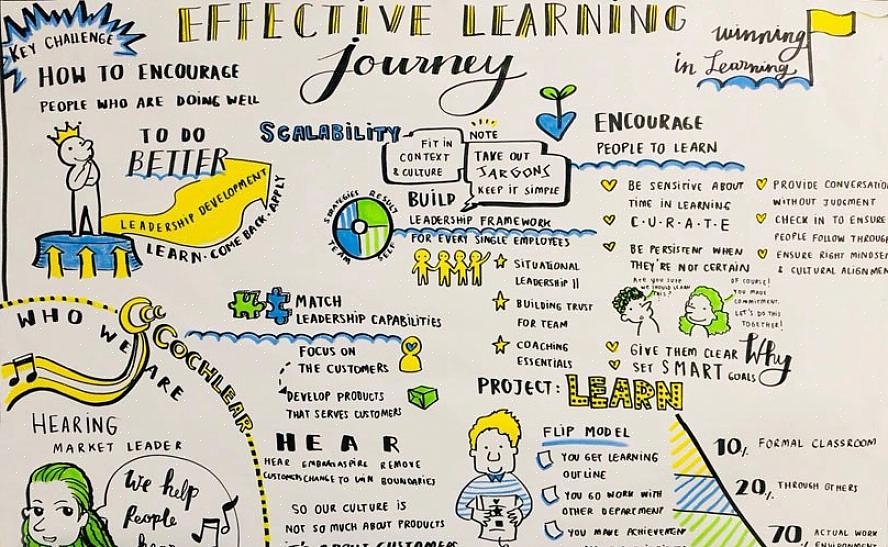 KEY CHALLENGE
HOW TO ENCOURAGE
PEOPLE WHO ARE DOING WELL
TO DO
BETTER
LEADERSHIP DEVELOPMENT
LEARN · COME BACK · APPLY
EFFECTIVE LEARNING
journey
winning
in Learning
SCALABILITY
FIT IN
CONTEXT
& CULTURE
NOTE
TAKE OUT
JARGONS
KEEP IT SIMPLE
BUILD
LEADERSHIP FRAMEWORK
FOR EVERY SINGLE EMPLOYEES
STRATEGIES
RESULT
TEAM
SELF
SITUATIONAL
LEADERSHIP II
BUILDING TRUST
FOR TEAM
COACHING
ESSENTIALS
ENCOURAGE
PEOPLE TO LEARN
BE SENSITIVE ABOUT
TIME IN LEARNING
C·U·R·A·T·E
BE PERSISTENT WHEN
THEY'RE NOT CERTAIN
PROVIDE
WITHOUT JUDGMENT
CHECK IN TO ENSURE
PEOPLE FOLLOW
ENSURE RIGHT
& CULTURAL
ARE YOU SURE
WE SHOULD LEARN
THIS?
OF COURSE!
YOU MADE
COMMITMENT.
LET'S DO THIS
TOGETHER!
GIVE THEM CLEAR Why
SET SMART GOALS
MATCH
LEADERSHIP CAPABILITIES
FOCUS ON
THE CUSTOMERS
DEVELOP PRODUCTS
THAT SERVES CUSTOMERS
WHO WE ARE
COCHLEAR
HEARING
MARKET LEADER
We help
People
HEAR
HEAR EMBRACE ASPIRE REMOVE
CUSTOMERS CHANGE TO WIN BOUNDARIES
SO OUR CULTURE IS
NOT SO MUCH ABOUT PRODUCTS
IT'S ABOUT CUSTOMERS
PROJECT: LEARN
FLIP MODEL
YOU GET LEARNING
OUTLINE
YOU GO WORK WITH
OTHER DEPARTMENT
YOU MAKE
10% FORMAL CLASSROOM
20% THROUGH OTHERS
70 ACTUAL WORK